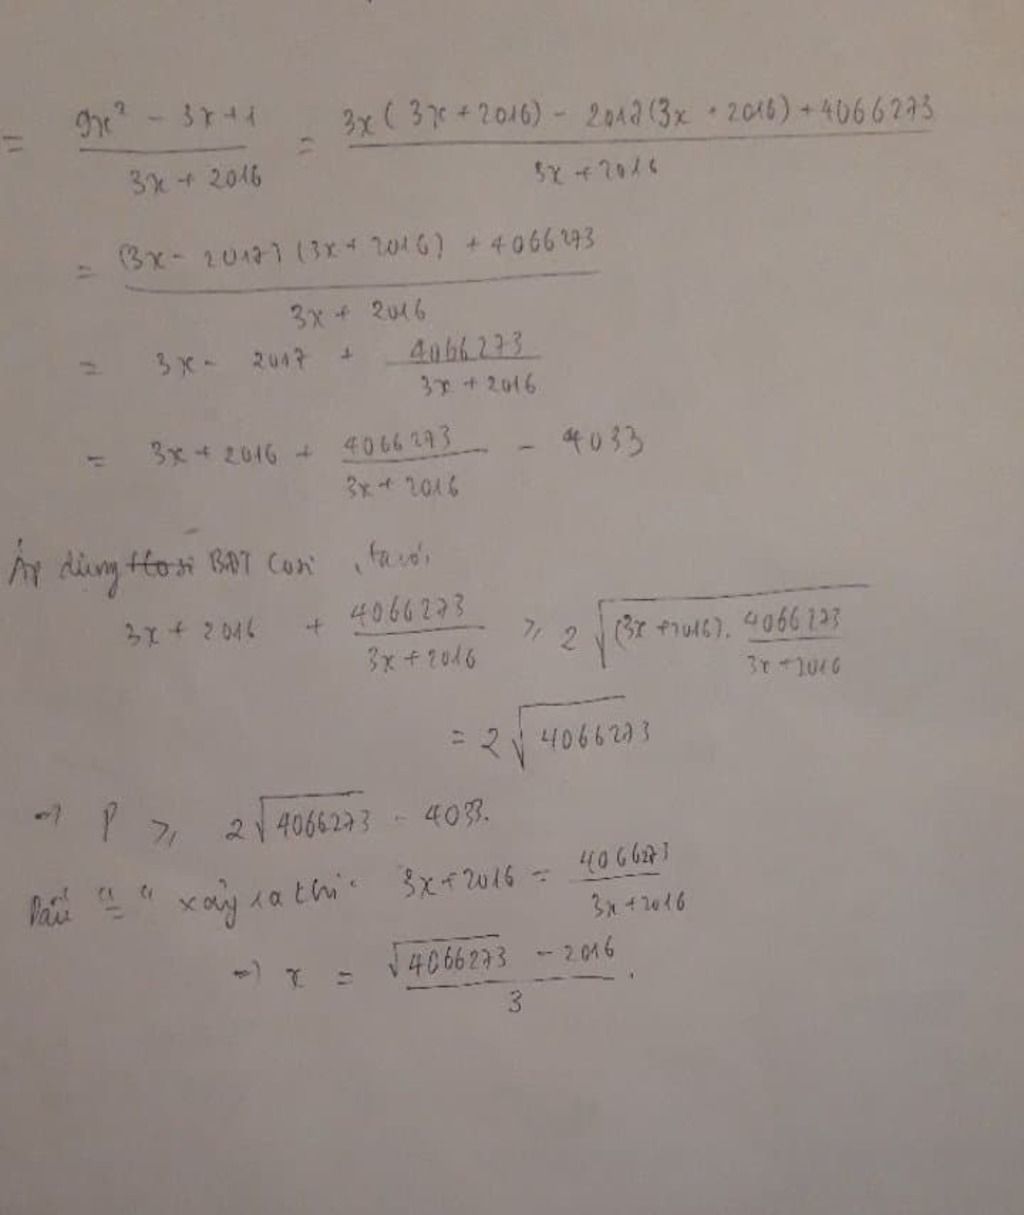 = \frac{9x^2 - 3x + 1}{3x + 2016} = \frac{3x(3x + 2016) - 2017(3x + 2016) + 4066273}{3x + 2016}
= \frac{(3x - 2017)(3x + 2016) + 4066273}{3x + 2016}
= 3x - 2017 + \frac{4066273}{3x + 2016}
= 3x + 2016 + \frac{4066273}{3x + 2016} - 4033
Áp dùng BĐT Cosi, ta có:
3x + 2016 + \frac{4066273}{3x + 2016} ≥ 2\sqrt{(3x + 2016) . \frac{4066273}{3x + 2016}}
= 2\sqrt{4066273}
=> P ≥ 2\sqrt{4066273} - 4033.
Dấu "=" xảy ra thì: 3x + 2016 = \frac{4066273}{3x + 2016}
=> x = \frac{\sqrt{4066273} - 2016}{3}.